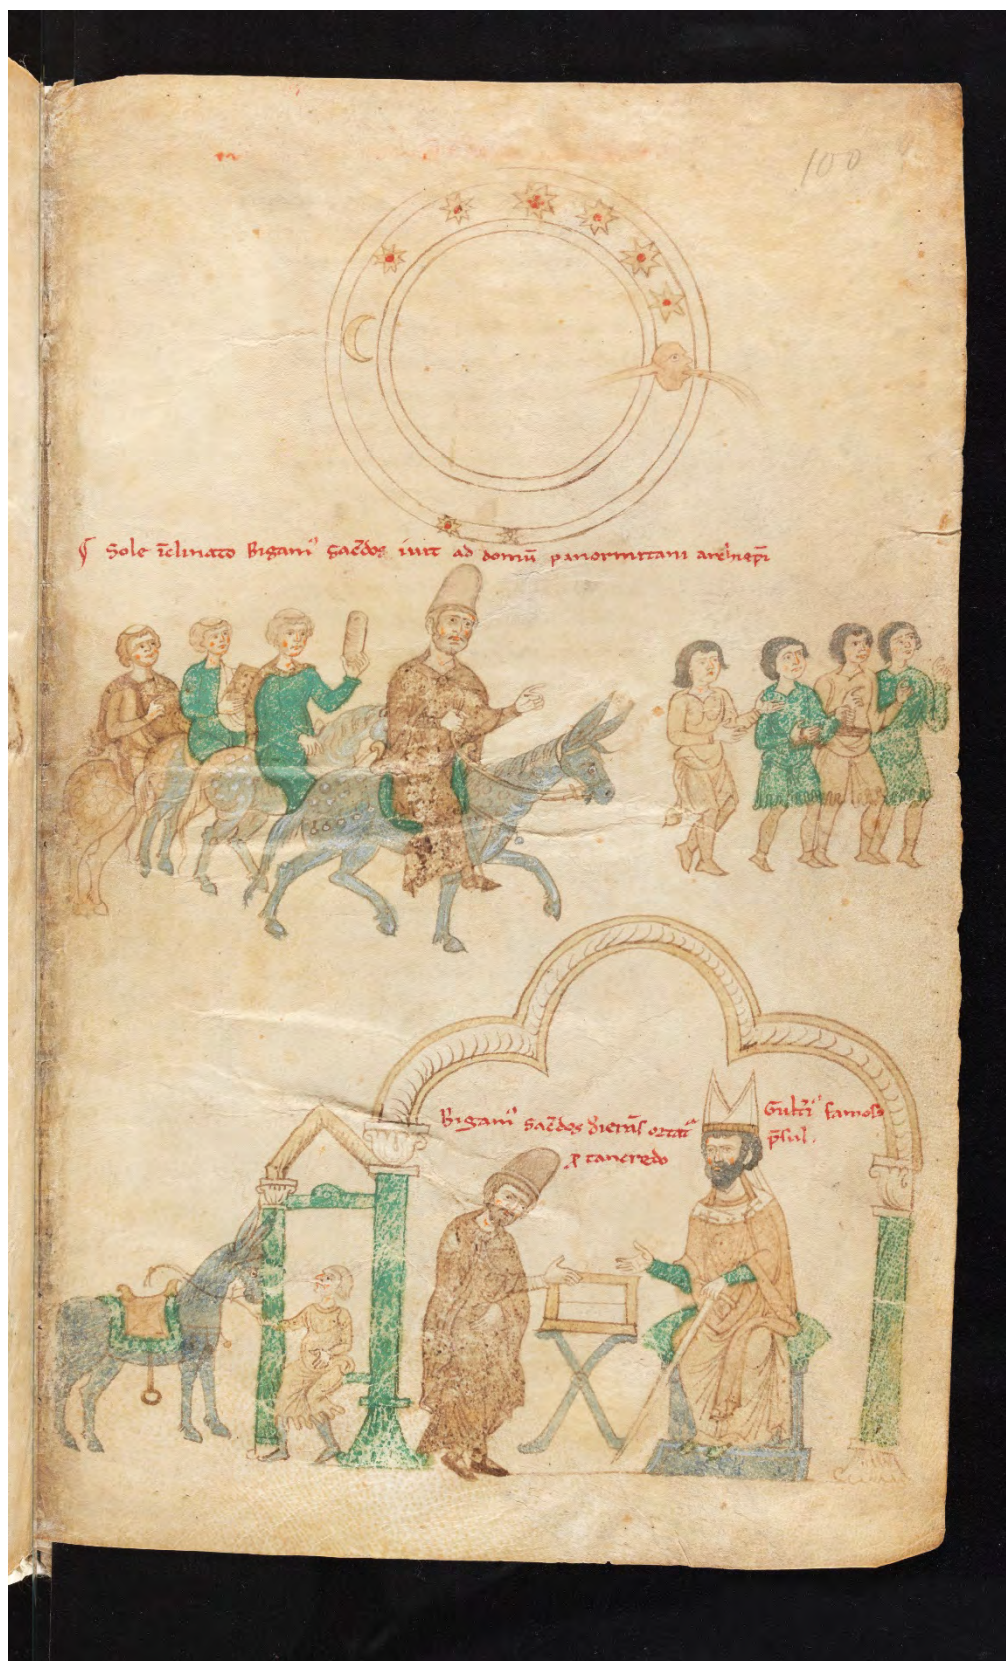 100
¶ Sole īclinato Bigamꝰ sac̄dos iuit ad domū panormitani archiep̄i
Bigamꝰ sac̄dos
ꝑ tancredo
Gult̄iꝰ famosꝰ
p̄sul.